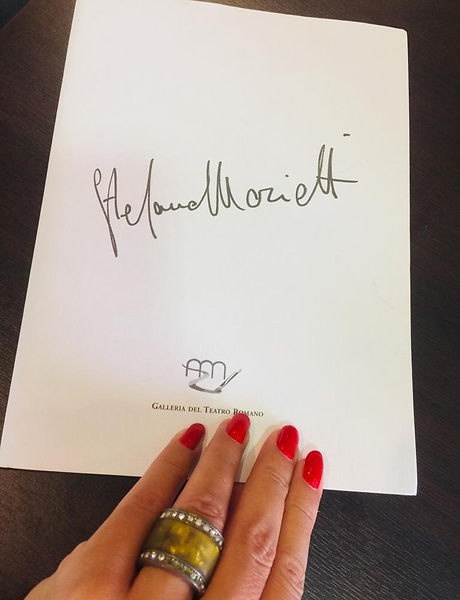 Stefano Morietti
AM
GALLERIA DEL TEATRO ROMANO